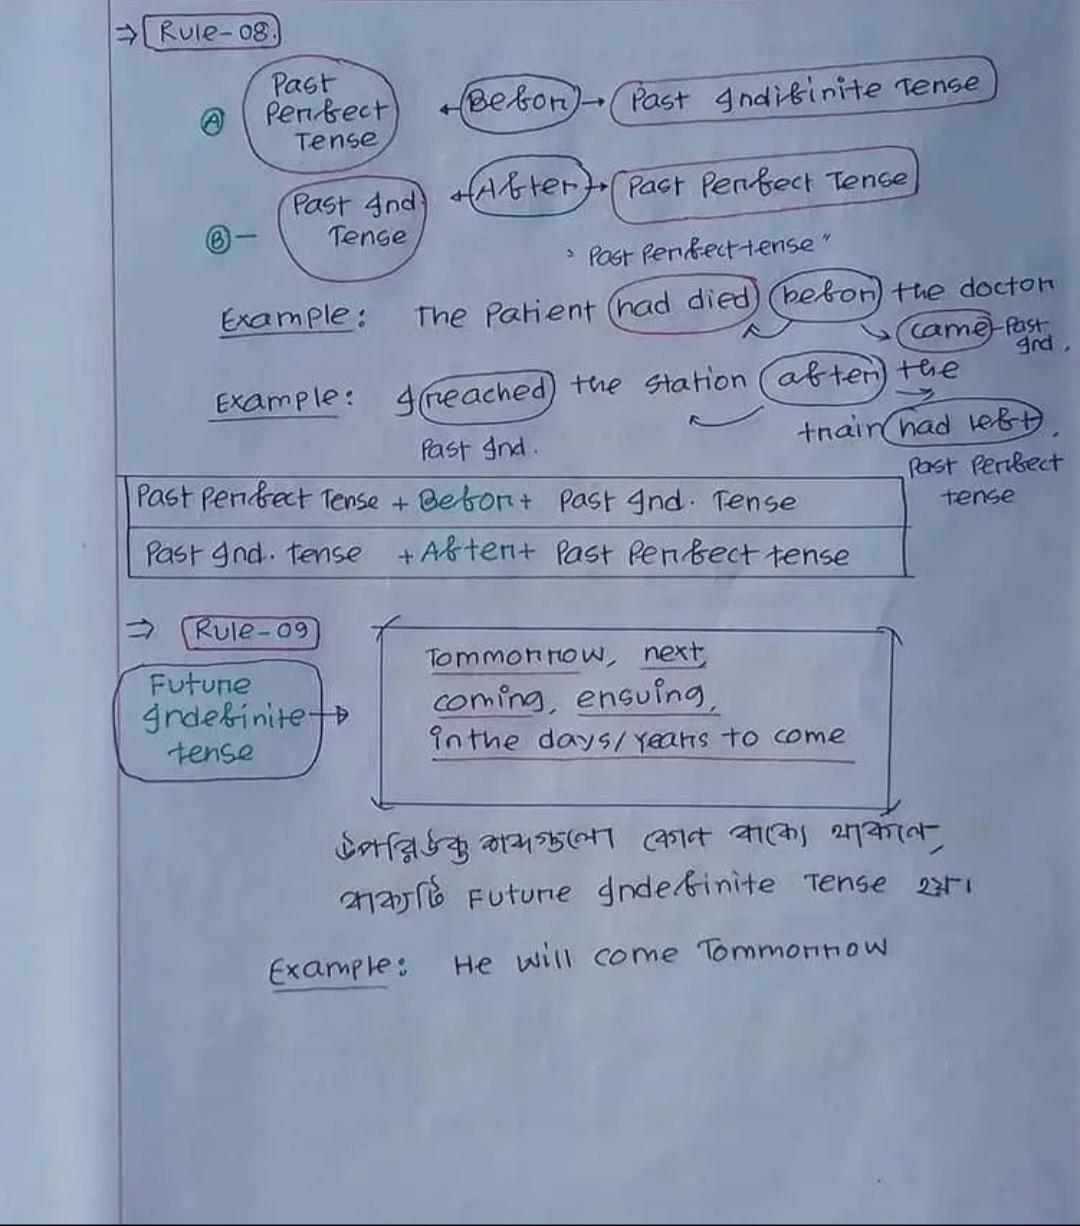 ⇒ Rule-08.
Ⓐ Past Perfect Tense ← Before → Past Indifinite Tense
Ⓑ - Past Ind Tense ← After → Past Perfect Tense
"Past Perfect tense"
Example: The Patient had died before the doctor
came - Past Ind.
Example: I reached the station after the
train had left.
Past Ind.
Past Perfect tense
Past Perfect Tense + Before + Past Ind. Tense
Past Ind. tense + After + Past Perfect tense
⇒ Rule-09
Future Indefinite tense →
Tommorrow, next,
coming, ensuing,
in the days/years to come
উপরিউক্ত শব্দগুলো কোন বাক্যে থাকলে,
বাক্যটি Future Indefinite Tense হয়।
Example: He will come Tommorrow